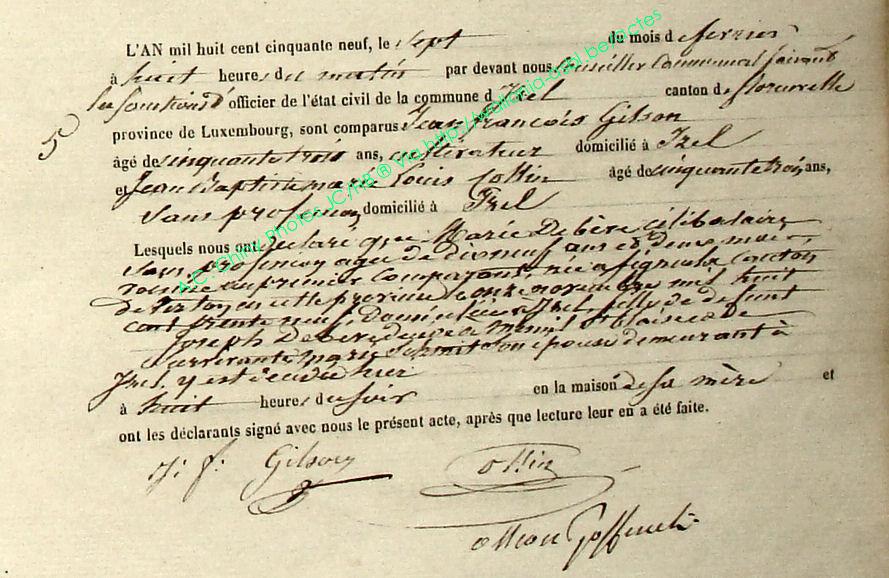 L'AN mil huit cent cinquante neuf, le sept du mois de fevrier
à huit heures du matin par devant nous Conseiller Communal faisant
les fonctions d'officier de l'état civil de la commune d'Izel canton de florenville
5
province de Luxembourg, sont comparus Jean françois Gilson
âgé de cinquante trois ans, cultivateur domicilié à Izel
et Jean Baptiste marie Louis Ottin âgé de cinquante trois ans,
sans profession domicilié à Izel
Lesquels nous ont déclaré que Marie Debère célibataire
sans profession agée de dix neuf ans et deux mois,
au premier comparant, née a canton
de Virton en cette province le onze novembre mil huit
cent trente neuf, domiciliée à Izel, fille de defunt
Joseph Debère décédé a Mesnil St blaise et de
survivante marie son épouse demeurant à
Izel, y est décédée hier
à huit heures du soir en la maison de sa mère et
ont les déclarants signé avec nous le présent acte, après que lecture leur en a été faite.
J: f: Gilson Ottin
Goffinet
A.C. Chiny Photos JC/HB ® via http://wallonia-asbl.be/actes